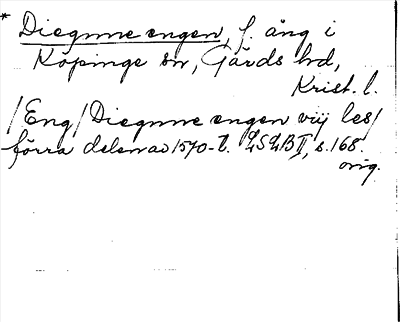 * Diegnne engen, f. äng i
Köpinge sn, Gärds hd,
Krist. l.
/Eng/ Diegnne engen vij les/
förra delen av 1570-t. LSLB II, s. 168.
orig.